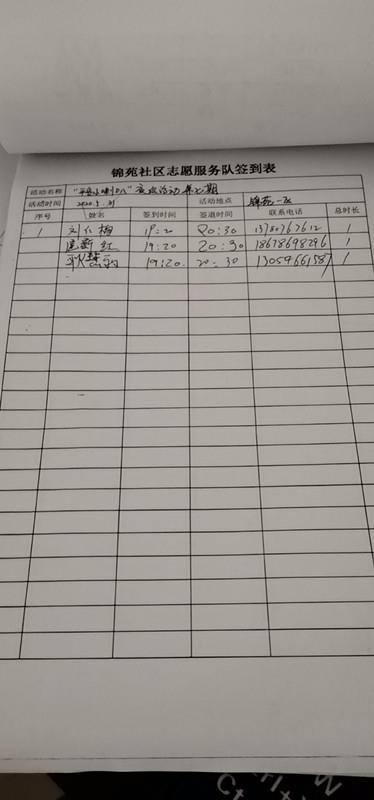 锦苑社区志愿服务队签到表
活动名称 "平安小喇叭" 宣夜活动 第七期
活动时间 2020.5.31 活动地点 锦苑一区
序号 姓名 签到时间 签退时间 联系电话 总时长
1 刘仁梅 19:20 20:30 13780767612 1
新红 19:20 20:30 18678698296 1
19:20. 20:30 13054661587 1